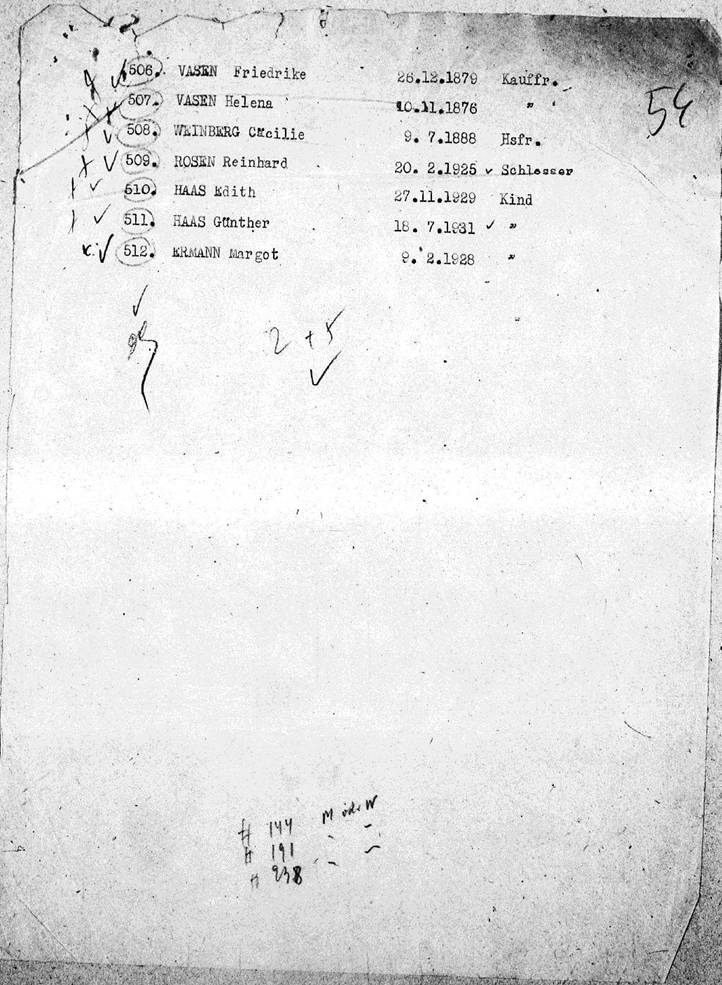 54
506. VASEN Friedrike 26.12.1879 Kauffr.
507. VASEN Helena 10.11.1876 "
508. WEINBERG Cäcilie 9. 7.1888 Hsfr.
509. ROSEN Reinhard 20. 2.1925 ✓ Schlosser
510. HAAS Edith 27.11.1929 Kind
511. HAAS Günther 18. 7.1931 ✓ "
512. ERMANN Margot 9. 2.1928 "
2 + 5
✓
# 144 M oder W
# 191
# 238